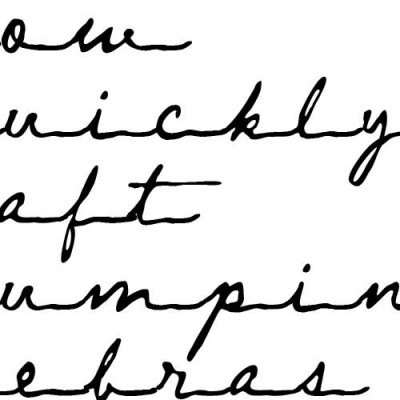 ow
uickly
aft
umpin
ebras